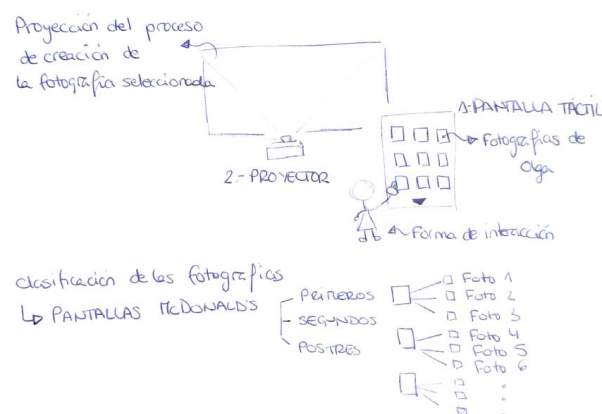 Proyección del proceso
de creación de
la fotografía seleccionada
1.-PANTALLA TÁCTIL
Fotografías de
Olga
2.- PROYECTOR
Forma de interacción
clasificación de las fotografías
PANTALLAS McDONALD'S
PRIMEROS
SEGUNDOS
POSTRES
Foto 1
Foto 2
Foto 3
Foto 4
Foto 5
Foto 6